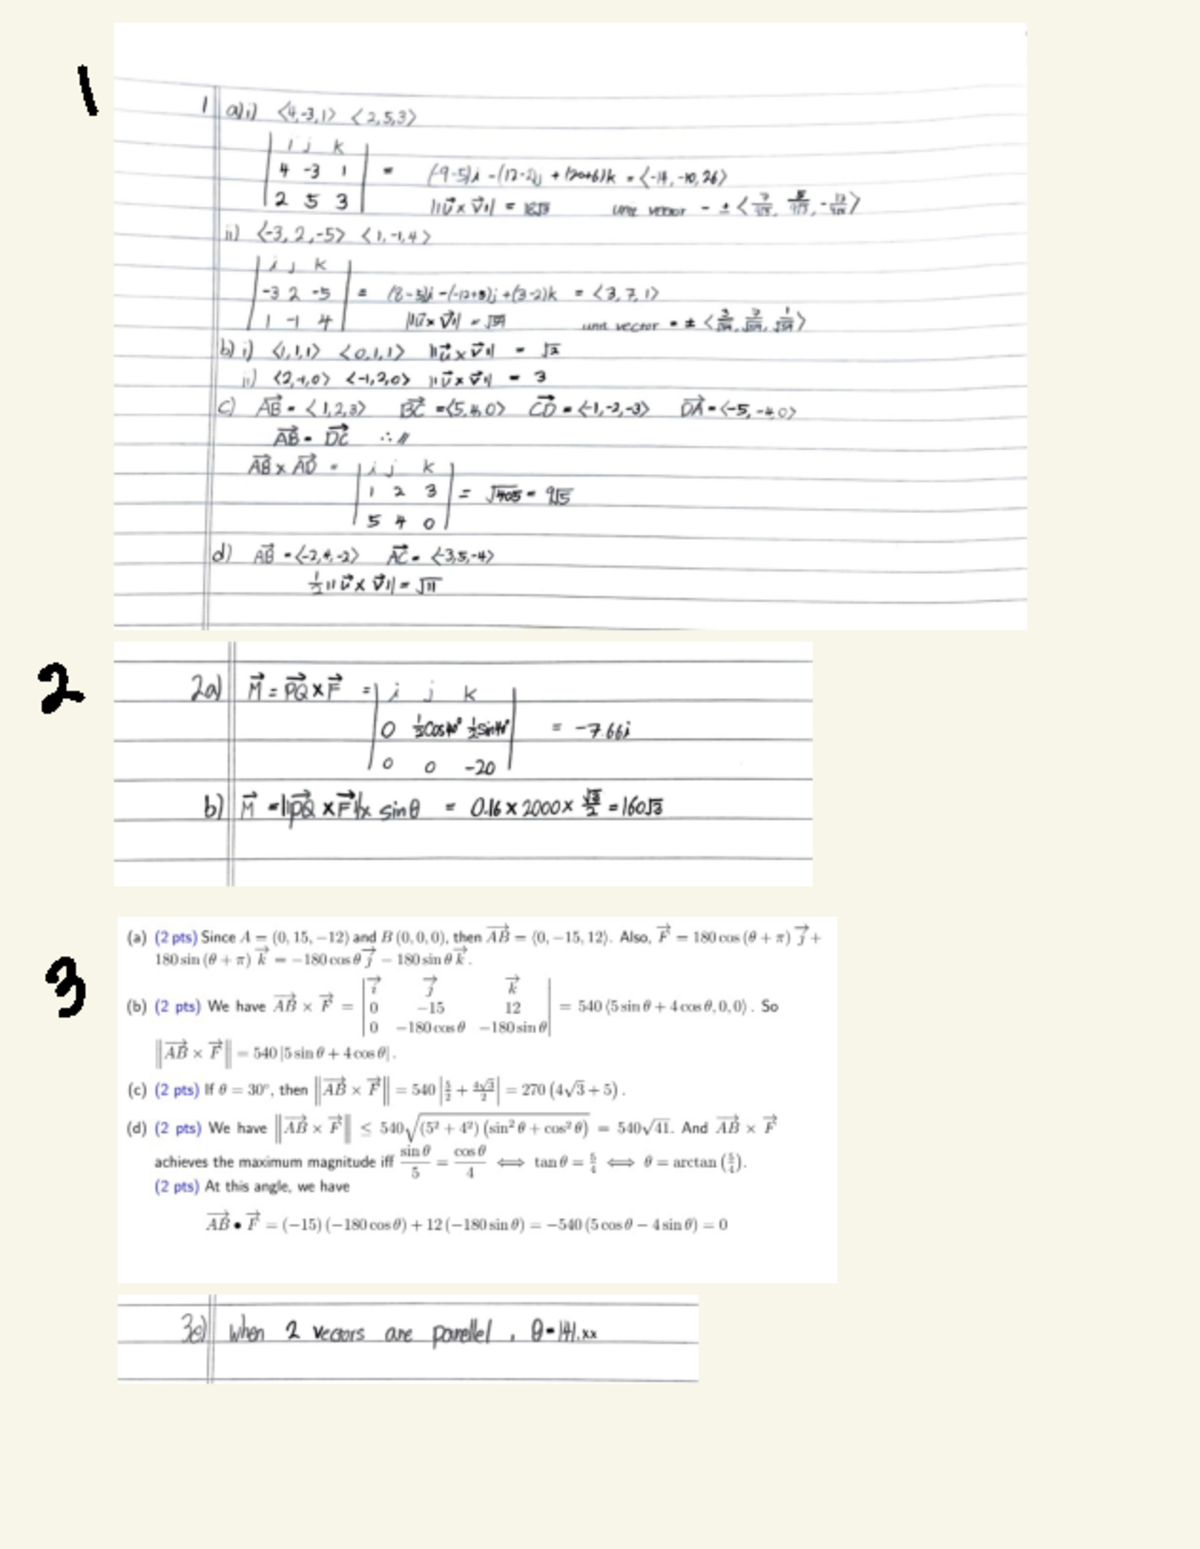 1
1 a) i) <4,-3,1> <2,5,3>
| i j k |
| 4 -3 1 | = (-9-5)i -(12-2)j + (20+6)k = <-14, -10, 26>
| 2 5 3 | ||u⃗ x v⃗|| = unit vector - ± <
ii) <-3, 2, -5> <1, -1, 4>
| i j k |
| -3 2 -5 | = (8-5)i -(-12+5)j +(3-2)k = <3, 7, 1>
| 1 -1 4 | ||u⃗ x v⃗|| = √59 unit vector = ± <3/√59, 7/√59, 1/√59>
b) i) <1,1,1> <0,1,1> ||u⃗ x v⃗|| = √2
ii) <2,-1,0> <-1,2,0> ||u⃗ x v⃗|| = 3
c) AB⃗ = <1,2,3> BC⃗ = <5,4,0> CD⃗ = <-1,-2,-3> DA⃗ = <-5,-4,0>
AB⃗ = DC⃗ ∴ //
AB⃗ x AD⃗ = | i j k |
| 1 2 3 | = √405 = 9√5
| 5 4 0 |
d) AB⃗ = <-2,4,-2> AC⃗ = <-3,5,-4>
½||u⃗ x v⃗|| = √11
2
2a) M⃗ = PQ⃗ x F⃗ = | i j k |
| 0 ½cos40° ½sin40° | = -7.66i
| 0 0 -20 |
b) M⃗ = |PQ⃗ x F⃗| x sinθ = 0.16 x 2000 x √3/2 = 160√3
3
(a) (2 pts) Since A = (0, 15, −12) and B (0, 0, 0), then AB⃗ = ⟨0, −15, 12⟩. Also, F⃗ = 180 cos (θ + π) j⃗ +
180 sin (θ + π) k⃗ = −180 cos θ j⃗ − 180 sin θ k⃗.
(b) (2 pts) We have AB⃗ × F⃗ = | i⃗ j⃗ k⃗ |
| 0 −15 12 | = 540 ⟨5 sin θ + 4 cos θ, 0, 0⟩. So
| 0 −180 cos θ −180 sin θ |
||AB⃗ × F⃗|| = 540 |5 sin θ + 4 cos θ|.
(c) (2 pts) If θ = 30°, then ||AB⃗ × F⃗|| = 540 |5/2 + 4√3/2| = 270 (4√3 + 5).
(d) (2 pts) We have ||AB⃗ × F⃗|| ≤ 540√((5² + 4²) (sin² θ + cos² θ)) = 540√41. And AB⃗ × F⃗
achieves the maximum magnitude iff sin θ/5 = cos θ/4 ⟺ tan θ = 5/4 ⟺ θ = arctan (5/4).
(2 pts) At this angle, we have
AB⃗ • F⃗ = (−15) (−180 cos θ) + 12 (−180 sin θ) = −540 (5 cos θ − 4 sin θ) = 0
3e) When 2 vectors are parellel , θ=141.xx